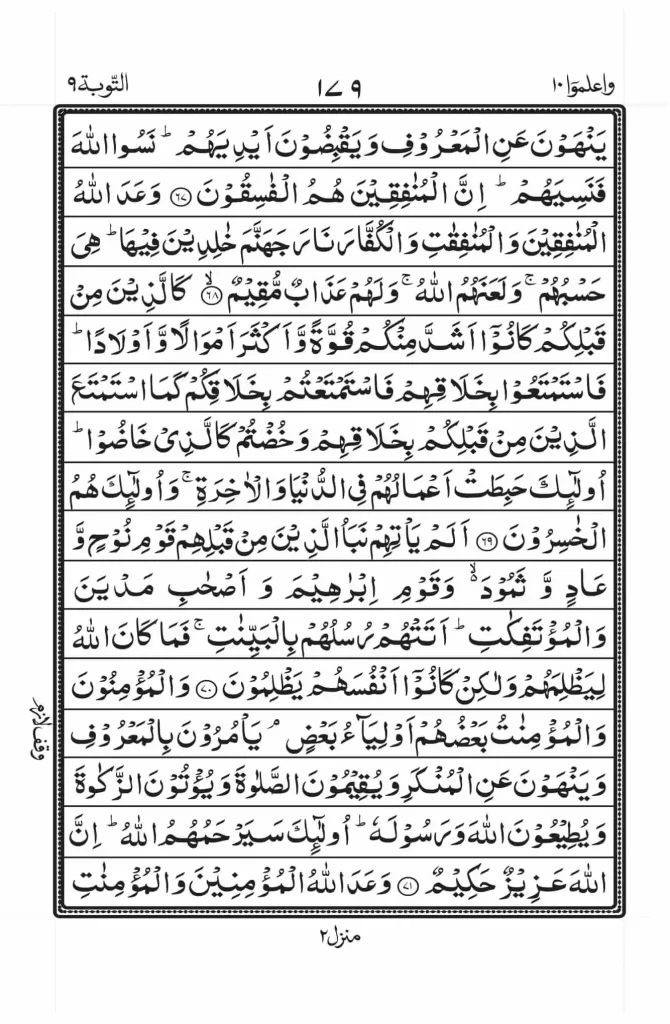 واعلموا ١٠
١٧٩
التّوبة ٩
يَنْهَوْنَ عَنِ الْمَعْرُوْفِ وَيَقْبِضُوْنَ اَيْدِيَهُمْ ؕ نَسُوا اللّٰهَ
فَنَسِيَهُمْ ؕ اِنَّ الْمُنٰفِقِيْنَ هُمُ الْفٰسِقُوْنَ ﴿٦٧﴾ وَعَدَ اللّٰهُ
الْمُنٰفِقِيْنَ وَالْمُنٰفِقٰتِ وَالْكُفَّارَ نَارَ جَهَنَّمَ خٰلِدِيْنَ فِيْهَا ؕ هِىَ
حَسْبُهُمْ ۚ وَلَعَنَهُمُ اللّٰهُ ۚ وَلَهُمْ عَذَابٌ مُّقِيْمٌ ﴿٦٨﴾ۙ كَالَّذِيْنَ مِنْ
قَبْلِكُمْ كَانُوْۤا اَشَدَّ مِنْكُمْ قُوَّةً وَّاَكْثَرَ اَمْوَالًا وَّاَوْلَادًا ؕ
فَاسْتَمْتَعُوْا بِخَلَاقِهِمْ فَاسْتَمْتَعْتُمْ بِخَلَاقِكُمْ كَمَا اسْتَمْتَعَ
الَّذِيْنَ مِنْ قَبْلِكُمْ بِخَلَاقِهِمْ وَخُضْتُمْ كَالَّذِىْ خَاضُوْا ؕ
اُولٰٓئِكَ حَبِطَتْ اَعْمَالُهُمْ فِى الدُّنْيَا وَالْاٰخِرَةِ ۚ وَاُولٰٓئِكَ هُمُ
الْخٰسِرُوْنَ ﴿٦٩﴾ اَلَمْ يَاْتِهِمْ نَبَاُ الَّذِيْنَ مِنْ قَبْلِهِمْ قَوْمِ نُوْحٍ وَّ
عَادٍ وَّ ثَمُوْدَ ۙ وَقَوْمِ اِبْرٰهِيْمَ وَ اَصْحٰبِ مَدْيَنَ
وَالْمُؤْتَفِكٰتِ ؕ اَتَتْهُمْ رُسُلُهُمْ بِالْبَيِّنٰتِ ۚ فَمَا كَانَ اللّٰهُ
لِيَظْلِمَهُمْ وَلٰكِنْ كَانُوْۤا اَنْفُسَهُمْ يَظْلِمُوْنَ ﴿٧٠﴾ وَالْمُؤْمِنُوْنَ
وَالْمُؤْمِنٰتُ بَعْضُهُمْ اَوْلِيَآءُ بَعْضٍ ۘ يَاْمُرُوْنَ بِالْمَعْرُوْفِ
وقف لازم
وَيَنْهَوْنَ عَنِ الْمُنْكَرِ وَيُقِيْمُوْنَ الصَّلٰوةَ وَيُؤْتُوْنَ الزَّكٰوةَ
وَيُطِيْعُوْنَ اللّٰهَ وَرَسُوْلَهٗ ؕ اُولٰٓئِكَ سَيَرْحَمُهُمُ اللّٰهُ ؕ اِنَّ
اللّٰهَ عَزِيْزٌ حَكِيْمٌ ﴿٧١﴾ وَعَدَ اللّٰهُ الْمُؤْمِنِيْنَ وَالْمُؤْمِنٰتِ
منزل ٢